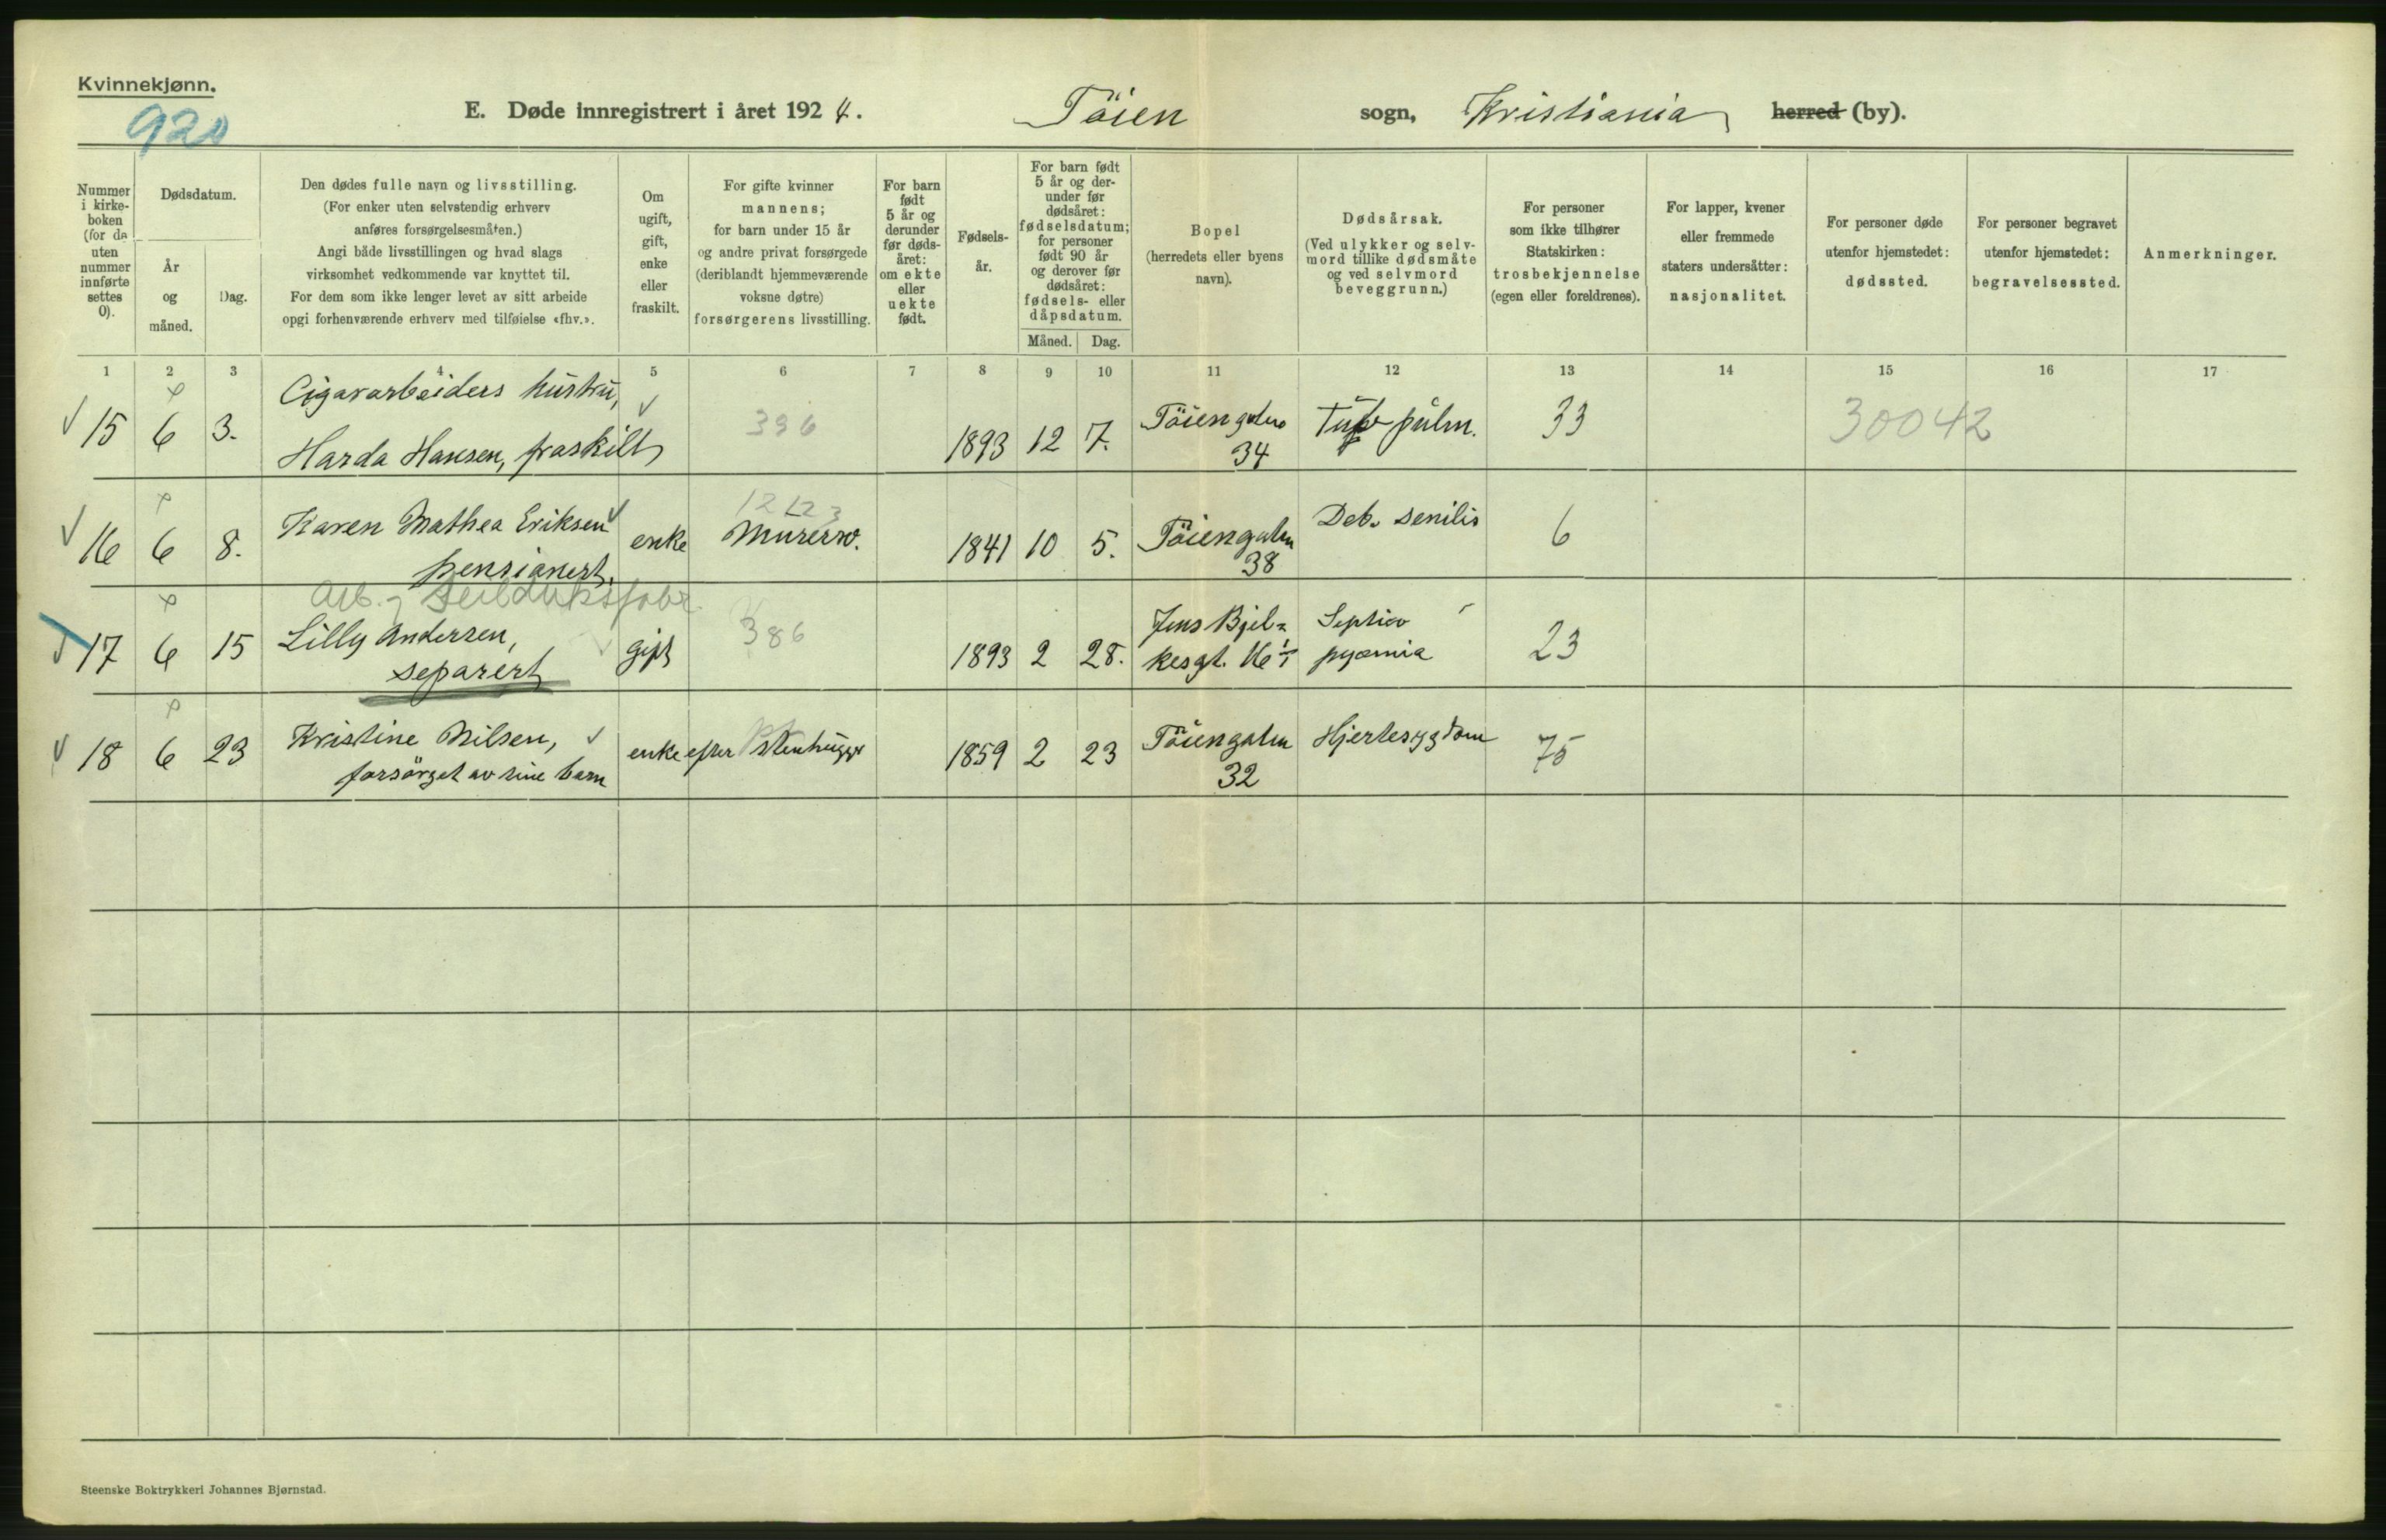 Kvinnekjønn.
920
E. Døde innregistrert i året 1924. Töien sogn, Kristiania herred (by).
Nummer i kirkeboken (for de uten nummer innførte settes 0).
Dødsdatum.
År og måned.
Dag.
Den dødes fulle navn og livsstilling.
(For enker uten selvstendig erhverv
anføres forsørgelsesmåten.)
Angi både livsstillingen og hvad slags
virksomhet vedkommende var knyttet til.
For dem som ikke lenger levet av sitt arbeide
opgi forhenværende erhverv med tilføielse «fhv.».
Om
ugift,
gift,
enke
eller
fraskilt.
For gifte kvinner
mannens;
for barn under 15 år
og andre privat forsørgede
(deriblandt hjemmeværende
voksne døtre)
forsørgerens livsstilling.
For barn
født
5 år og
derunder
før døds-
året:
om ekte
eller
uekte
født.
Fødsels-
år.
For barn født
5 år og der-
under før
dødsåret:
fødselsdatum;
for personer
født 90 år
og derover før
dødsåret:
fødsels- eller
dåpsdatum.
Måned. Dag.
Bopel
(herredets eller byens
navn).
Dødsårsak.
(Ved ulykker og selv-
mord tillike dødsmåte
og ved selvmord
beveggrunn.)
For personer
som ikke tilhører
Statskirken:
trosbekjennelse
(egen eller foreldrenes).
For lapper, kvener
eller fremmede
staters undersåtter:
nasjonalitet.
For personer døde
utenfor hjemstedet:
dødssted.
For personer begravet
utenfor hjemstedet:
begravelsessted.
Anmerkninger.
1 2 3 4 5 6 7 8 9 10 11 12 13 14 15 16 17
Cigararbeiders hustru,
15 6 3. Harda Hansen, fraskilt 396 1893 12 7. Töiengaten 34 Tub pulm. 33 30042
16 6 8. Karen Mathea Eriksen enke 1223 Murersv. 1841 10 5. Töiengaten 38 Deb. senilis 6
pensionert.
Arb. Seilduksfabr.
17 6 15 Lilly Andersen, gift 386 1893 2 28. Jens Bjel-
kesgt. 16 Septico
pyæmia 23
separert
18 6 23 Kristine Nilsen, enke efter Stenhugger 1859 2 23 Töiengaten 32 Hjertesygdom 75
forsörget av sine barn
Steenske Boktrykkeri Johannes Bjørnstad.